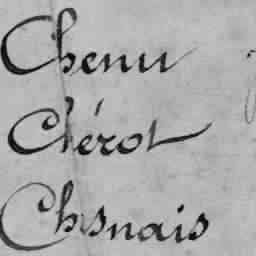 Chenu
Chérot
Chesnais